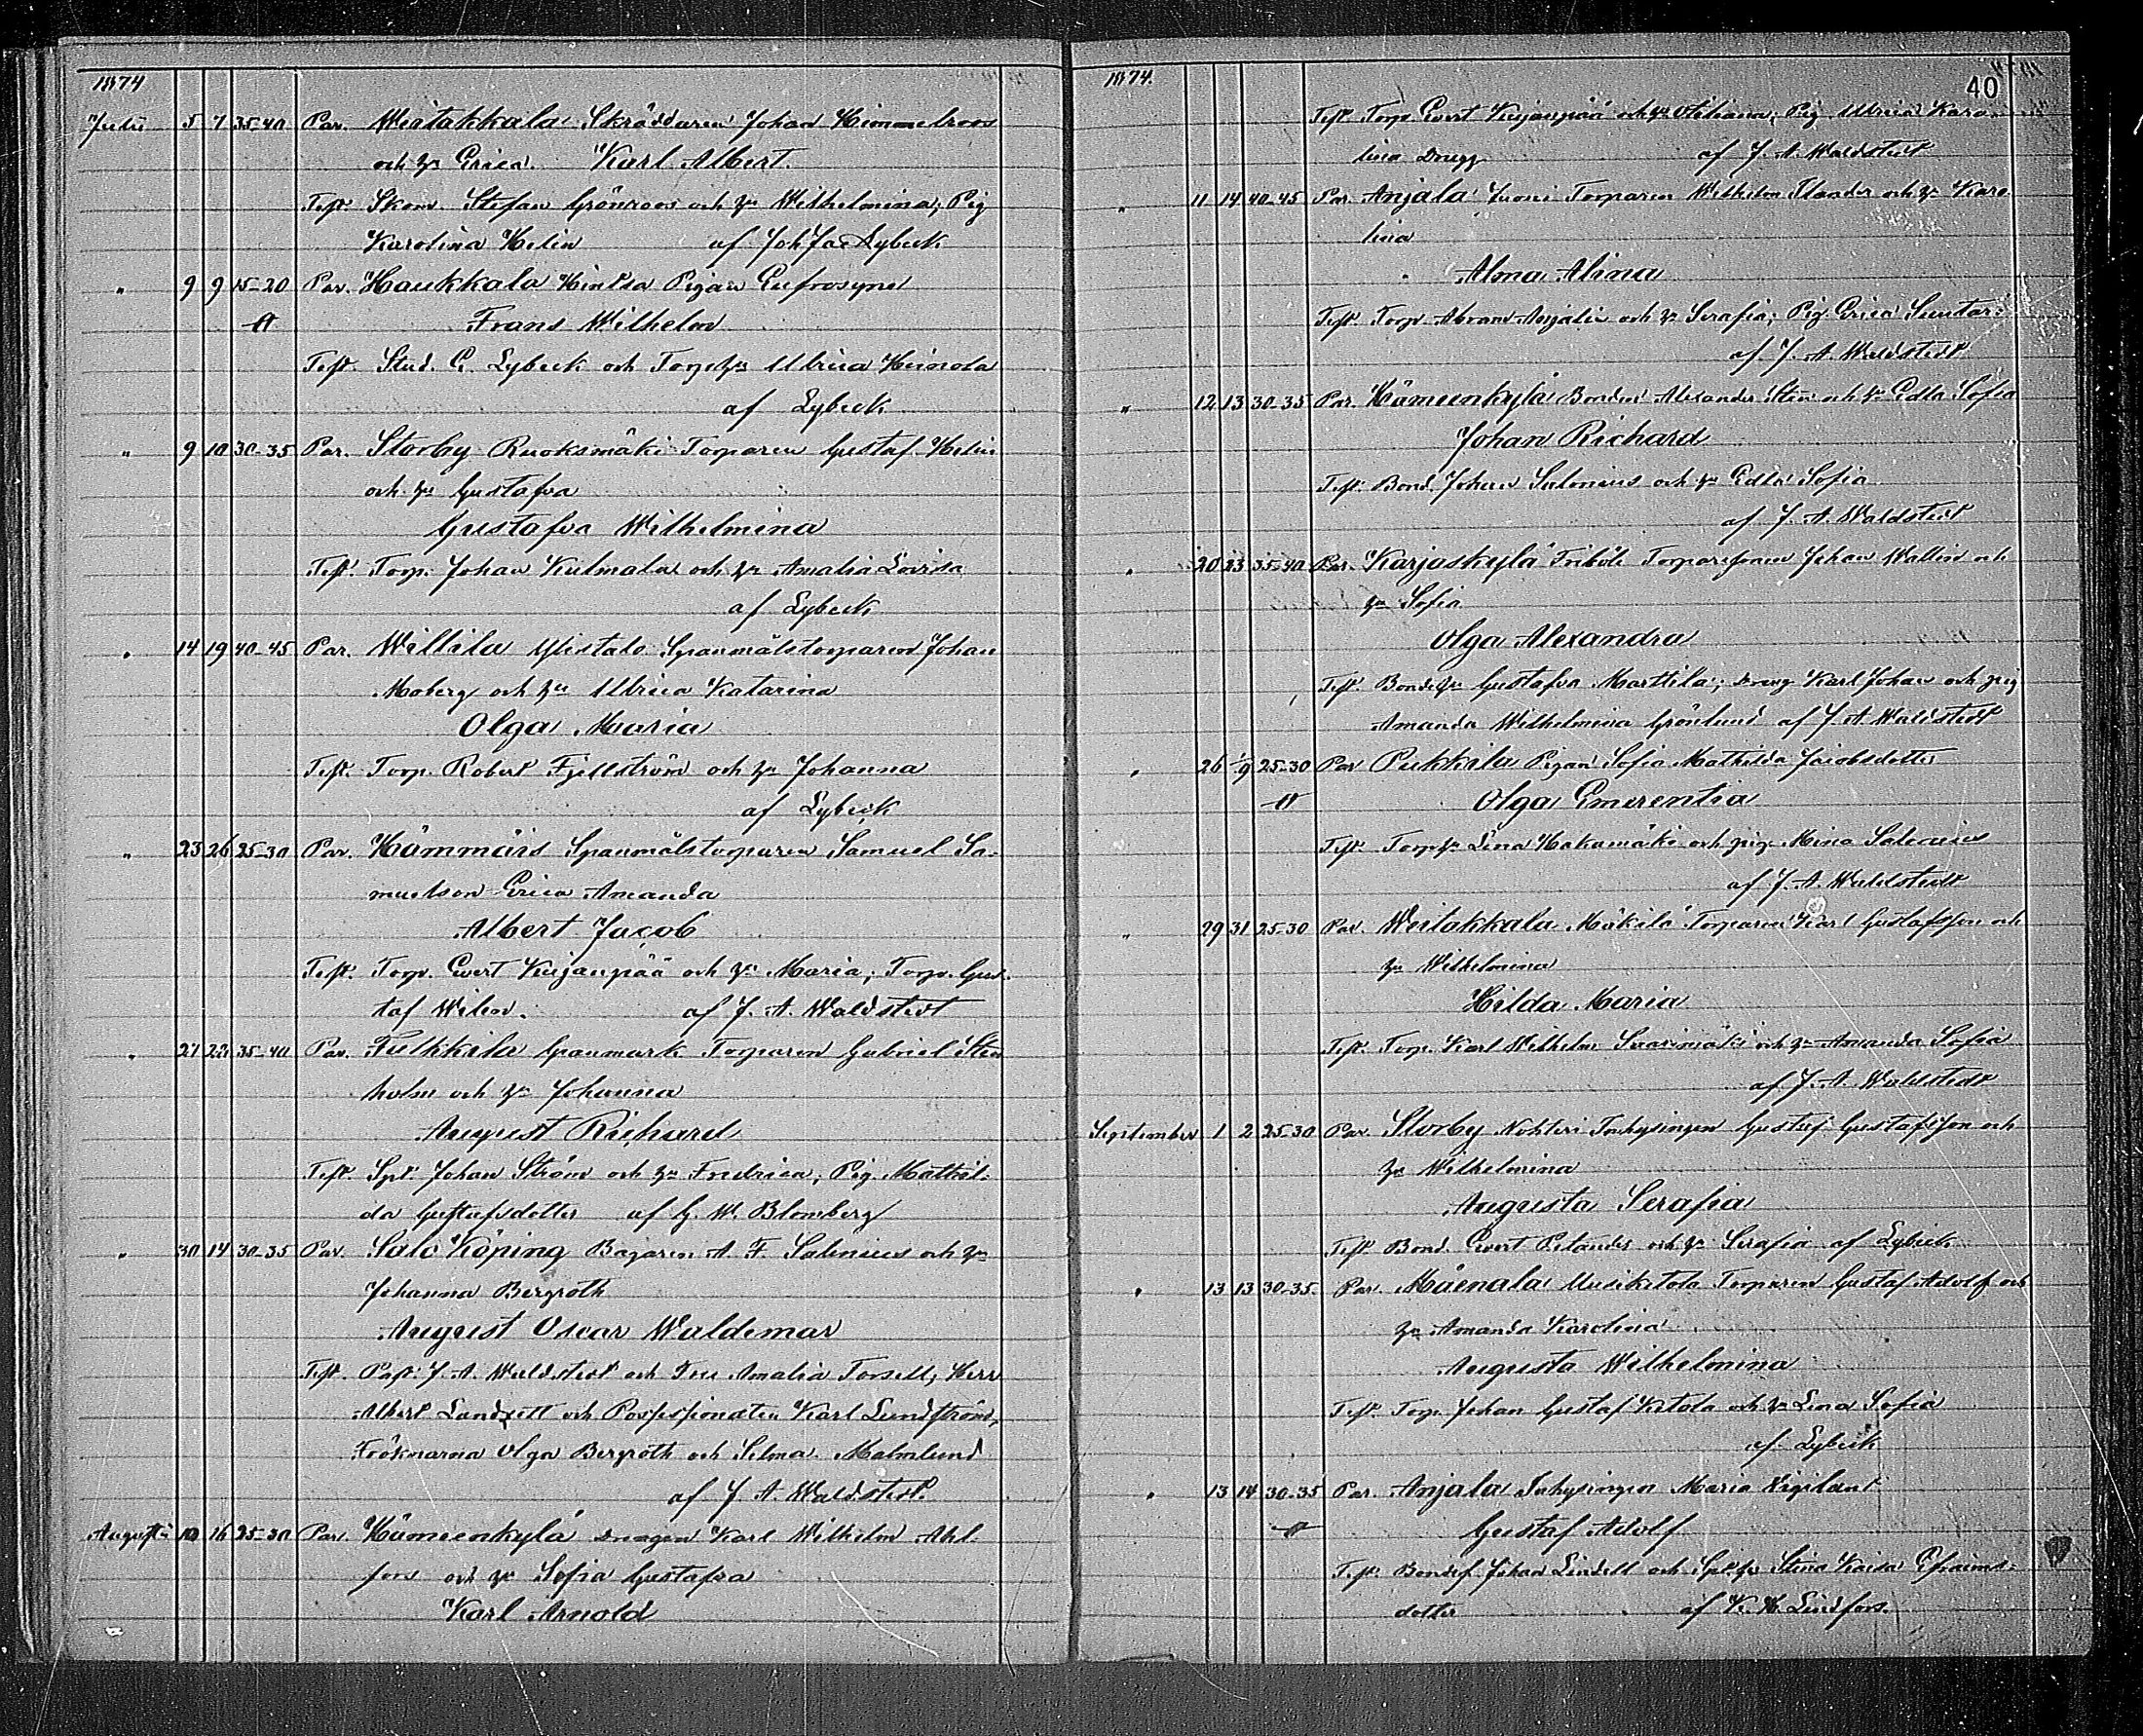 1874
Julii 5 7 35-40 Par. Weitakkala Skräddaren Johan Himmelroos
och Hu Erica. Karl Albert.
Test. Skom. Stefan Grönroos och Hu Wilhelmina; Pig
Karolina Helin af Joh Jac Lybeck
" 9 9 15-20 Par. Haukkala Hintsa Pigan Eufrosyne
Frans Wilhelm
Test. Stud. C. Lybeck och Torp.hu Ulrica Heinola
af Lybeck
" 9 10 30-35 Par. Storby Ruoksmäki Torparen Gustaf Helin
och Hu Gustafva
Gustafva Wilhelmina
Test. Torp. Johan Kulmala och Hu Amalia Lovisa
af Lybeck
" 14 19 40-45 Par. Willila Ylistalo Spanmålstorparen Johan
Moberg och Hu Ulrica Katarina
Olga Maria
Test. Torp. Robert Fjellström och Hu Johanna
af Lybeck
" 23 26 25-30 Par. Hämmäis Spanmålstorparen Samuel Sa-
muelson Erica Amanda
Albert Jacob
Test. Torp. Evert Kujanpää och Hu Maria; Torp. Gus-
taf Wilen. af J. A. Waldstedt
" 27 28 35-40 Par. Pukkila Granmark Torparen Gabriel Sten
holm och Hu Johanna
August Richard
Test. Spt. Johan Ström och Hu Fredrica; Pig. Mathil-
da Gustafsdotter af G. W. Blomberg
" 30 14 30-35 Par. Salo Köping Bagaren A. F. Salenius och Hu
Johanna Bergroth
August Oscar Waldemar
Test. Past. J. A. Waldstedt och Fru Amalia Forsell; Herr
Albert Landzett och Possessionaten Karl Lundström,
Fröknarna Olga Bergroth och Selma Malmlund
af J. A. Waldstedt.
Augusti 10 16 25-30 Par. Hämeenkylä Drängen Karl Wilhelm Ahl-
fors och Hu Sofia Gustafva
Karl Arnold
1874. 40
Test. Torp. Evert Kujanpää och Hu Otiliana; Pig Ulrica Karo-
lina Dragg af J. A. Waldstedt
" 11 14 40-45 Par. Anjala Torparen Wilhelm Flander och Hu Karo
lina
Alma Alina
Test. Torp. Abram Anjalin och Hu Serafia; Pig Erica Suutar:
af J. A. Waldstedt
" 12 13 30-35 Par. Hämeenkylä Bonden Alexander Sten och Hu Edla Sofia
Johan Richard
Test. Bond. Johan Salonius och Hu Edla Sofia
af J. A. Waldstedt
" 20 23 35-40 Par. Karjaskylä Friböle Torparsonen Johan Wallin och
Hu Sofia
Olga Alexandra
Test. Bondehu Gustafva Marttila; Dräng Karl Johan och pig
Amanda Wilhelmina Grönlund af J. A. Waldstedt
" 26 1/9 25-30 Par Pukkila Pigan Sofia Mathilda Jacobsdotter
Olga Emerentia
Test. Torp.hu Lena Hakamäki och pig. Mina Salenius
af J. A. Waldstedt
" 29 31 25-30 Par. Weitakkala Mäkilä Torparen Karl Gustafsson och
Hu Wilhelmina
Hilda Maria
Test. Torp. Karl Wilhelm Saarimäki och Hu Amanda Sofia
af J. A. Waldstedt
September 1 2 25-30 Par. Storby Nohteri Inhysingen Gustaf Gustafsson och
Hu Wilhelmina
Augusta Serafia
Test. Bond. Evert Pelander och Hu Serafia af Lybeck
" 13 13 30-35. Par. Mäenala Uusikitola Torparen Gustaf Adolf och
Hu Amanda Karolina
Augusta Wilhelmina
Test. Torp. Johan Gustaf Kitola och Hu Lena Sofia
af Lybeck
" 13 14 30-35 Par. Anjala Inhysingen Maria Vigilant
Gustaf Adolf
Test. Bondes. Johan Lindell och Spt.hu Stina Kaisa Efraims-
dotter af K. H. Lindfors.